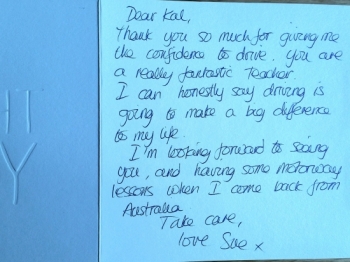 Dear Kal,
Thank you so much for giving me
the confidence to drive. You are
a really fantastic teacher.
I can honestly say driving is
going to make a big difference
to my life.
I'm looking forward to seeing
you, and having some motorway
lessons when I come back from
Australia
Take care,
love Sue x
HT
Y